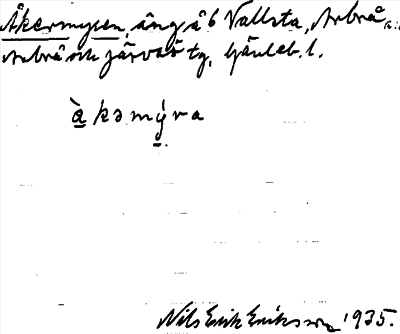 Åkermyren, äng å 6 Vallsta, Arbrå s:n
Arbrå och Järvsö tg, Gävleb. l.
àkəmýra
Nils Erik Eriksson 1935.